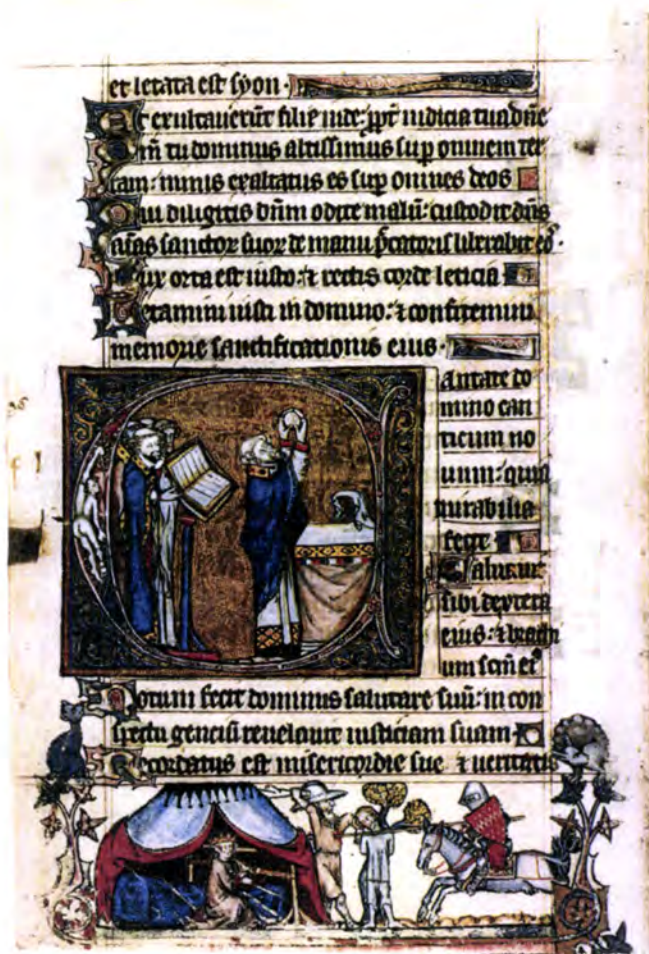 et letata est syon.
Et exultaverūt filie iude: ꝓpt̄ iudicia tua dn̄e
Qm̄ tu dominus altissimus sup omnem ter
ram: nimis exaltatus es sup omnes deos
Qui diligitis dn̄m odite malū: custodit dn̄s
aīas sanctoꝝ suoꝝ de manu p̄catoris liberabit eos.
Lux orta est iusto: ⁊ rectis corde leticia
Letamini iusti in domino: ⁊ confitemini
memorie sanctificationis eius.
Cantate do
mino can
ticum no
uum: quia
mirabilia
fecit
Saluauit
sibi dextera
eius: ⁊ brachi
um sc̄m ei⁹
Notum fecit dominus salutare suū: in con
spectu genciū reuelauit iusticiam suam
Recordatus est misericordie sue ⁊ ueritatis